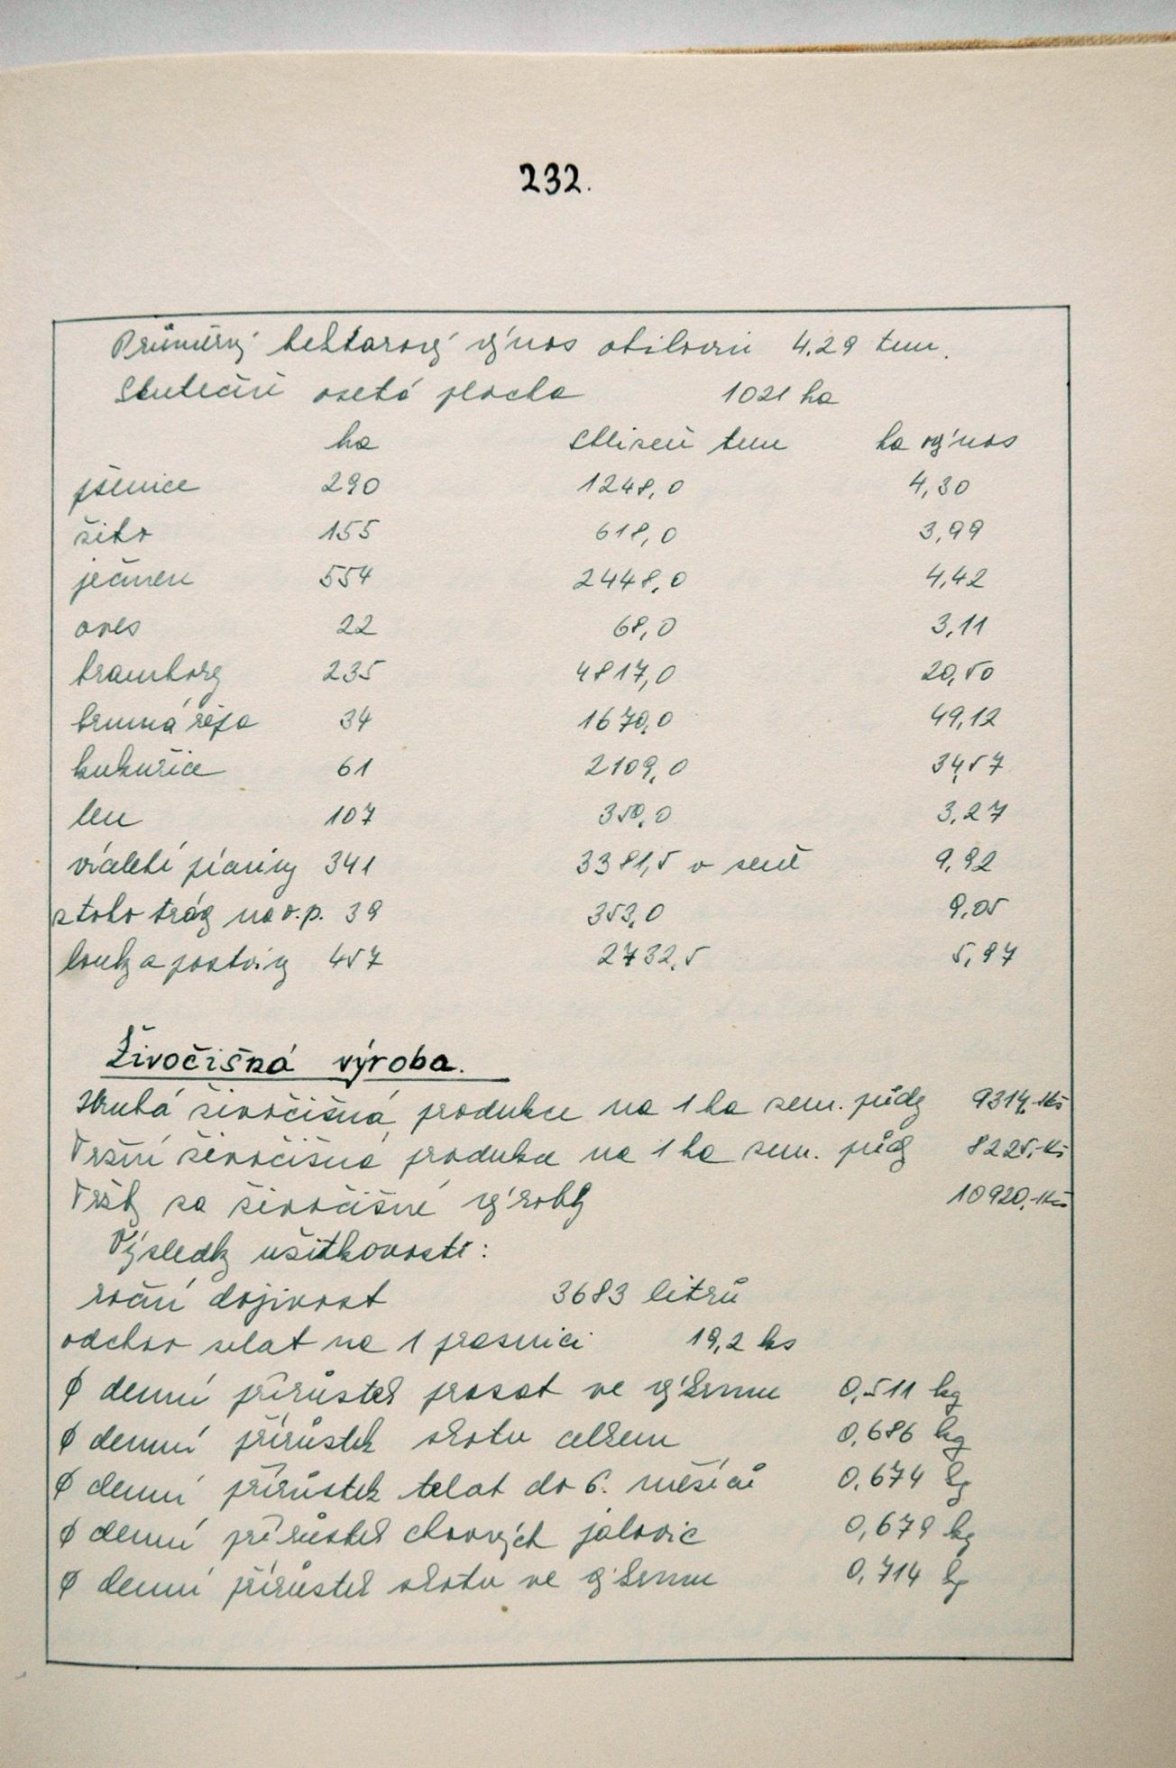 232.
Průměrný hektarový výnos obilovin 4,29 tun.
Skutečně osetá plocha 1021 ha
ha Sklizeň tun ha výnos
pšenice 290 1248,0 4,30
žito 155 618,0 3,99
ječmen 554 2448,0 4,42
oves 22 68,0 3,11
brambory 235 4817,0 20,50
krmná řepa 34 1670,0 49,12
kukuřice 61 2109,0 34,57
len 107 350,0 3,27
víceleté pícniny 341 3381,5 v seně 9,92
z toho trávy na o.p. 39 353,0 9,05
louky a pastviny 457 2732,5 5,97
Živočišná výroba.
Hrubá živočišná produkce na 1 ha zem. půdy 9314,-Kčs
Tržní živočišná produkce na 1 ha zem. půdy 8225,-Kčs
Tržby za živočišné výrobky 10920,-Kčs
Výsledky užitkovosti:
roční dojivost 3683 litrů
odchov selat na 1 prasnici 19,2 ks
ϕ denní přírůstek prasat ve výkrmu 0,511 kg
ϕ denní přírůstek skotu celkem 0,686 kg
ϕ denní přírůstek telat do 6. měsíců 0,674 kg
ϕ denní přírůstek chovných jalovic 0,679 kg
ϕ denní přírůstek skotu ve výkrmu 0,714 kg